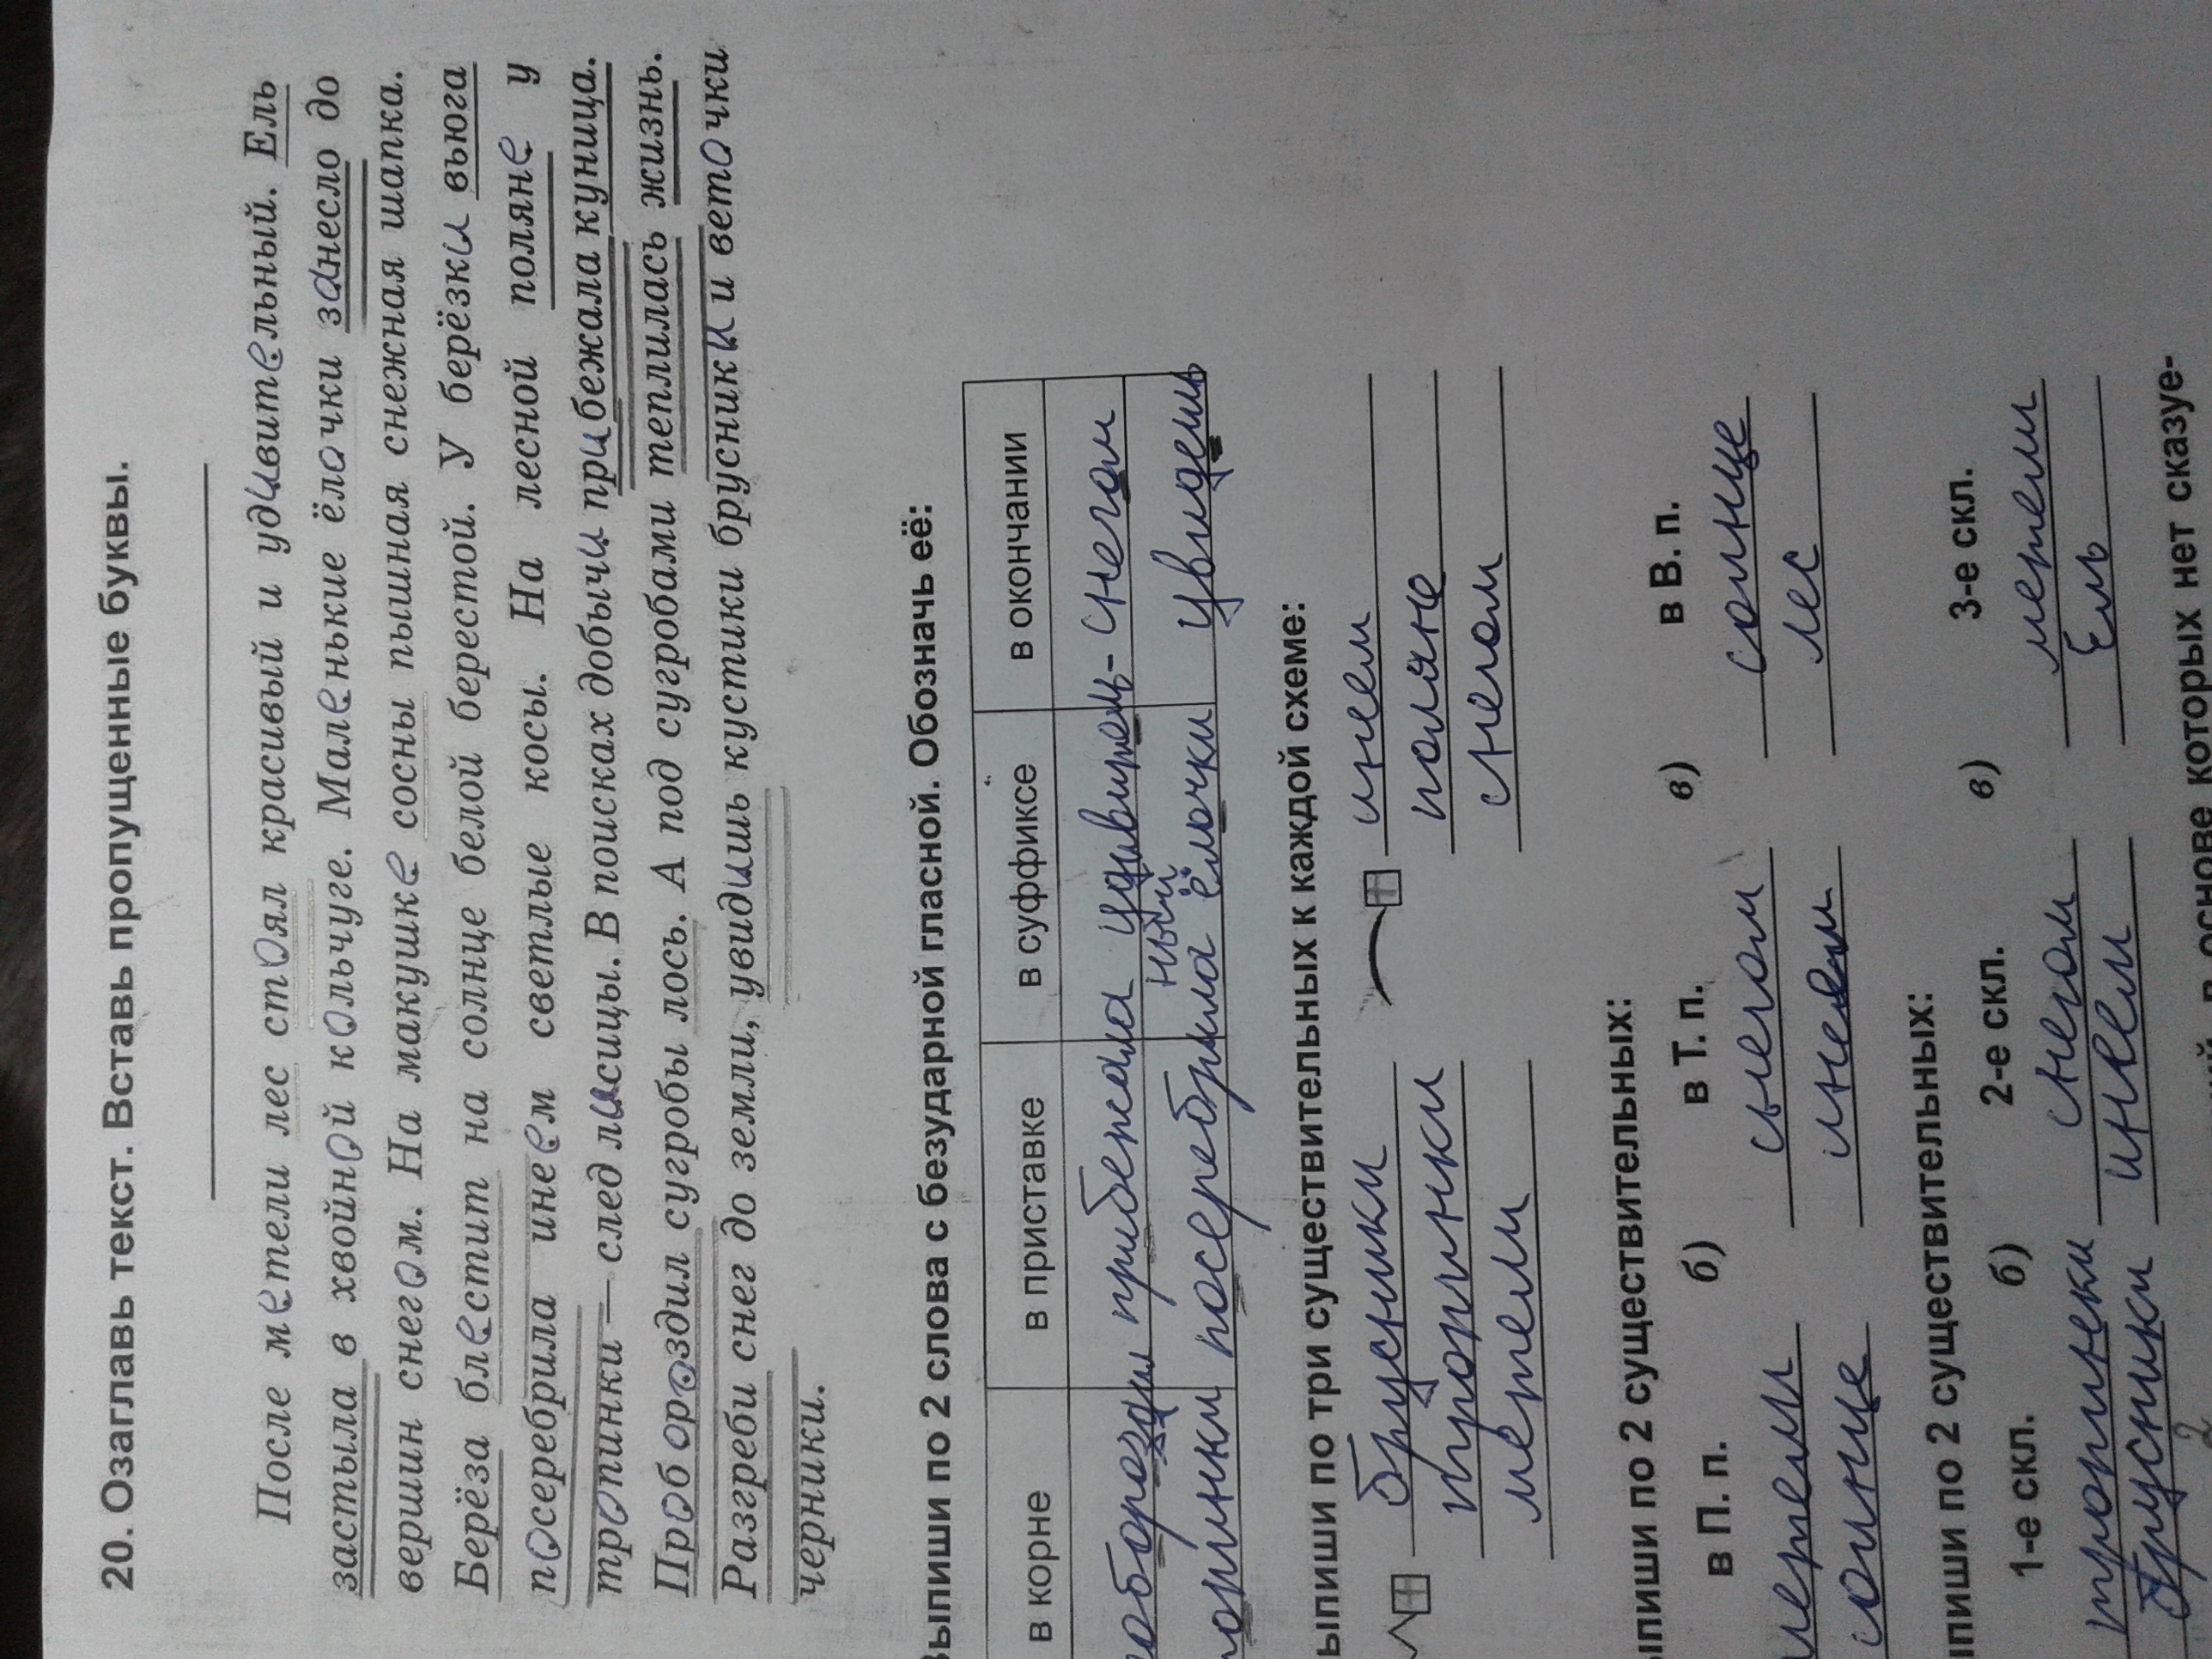 20. Озаглавь текст. Вставь пропущенные буквы.
После метели лес стоял красивый и удивительный. Ель
застыла в хвойной кольчуге. Маленькие ёлочки занесло до
вершин снегом. На макушке сосны пышная снежная шапка.
Берёза блестит на солнце белой берестой. У берёзки вьюга
посеребрила инеем светлые косы. На лесной поляне у
тропинки — след лисицы. В поисках добычи прибежала куница.
Пробороздил сугробы лось. А под сугробами теплилась жизнь.
Разгреби снег до земли, увидишь кустики брусники и веточки
черники.
Выпиши по 2 слова с безударной гласной. Обозначь её:
в корне в приставке в суффиксе в окончании
прибежала удивитель- снегом
ный
посеребрила ёлочки увидешь
ыпиши по три существительных к каждой схеме:
брусники инеем
тропинки поляне
метели снегом
ыпиши по 2 существительных:
в П. п. б) в Т. п. в) в В. п.
метели снегом солнце
солнце инеем лес
пиши по 2 существительных:
1-е скл. б) 2-е скл. в) 3-е скл.
тропинки снегом метели
брусники инеем Ель
основе которых нет сказуе-